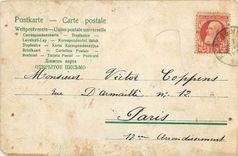 Postkarte - Carte postale
Weltpostverein - Union postale universelle
Correspondenzkarte - Dopisnice
Levelező-Lap - Korespondenční lístek
Dopisnica - Karta korespondencyjna
Briefkaart - Cartolina postale
Brefkort - Tarjeta Postal
ОТКРЫТОЕ ПИСЬМО
Monsieur Victor Coppens
rue D'armaillé, n°. 12
Paris
17me Arrondissement